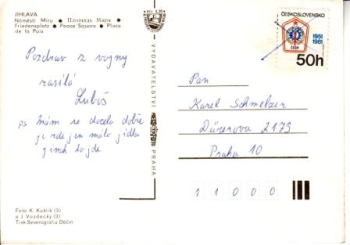 JIHLAVA
Náměstí Míru • Площадь Мира •
Friedensplatz • Peace Square • Place
de la Paix
Pozdrav z vojny
zasílá
Luboš
PS mám se docela dobře
je zde jen málo jídla
jinak to jde
Foto K. Kuklík (3)
a J. Vozdecký (3)
Tisk Severografia Děčín
VYDAVATELSTVÍ
PRAHA
ČESKOSLOVENSKO
1951
1981
50h
Pan
Karel Schmelzer
Dürerova 2179
Praha 10
1 1 0 0 0